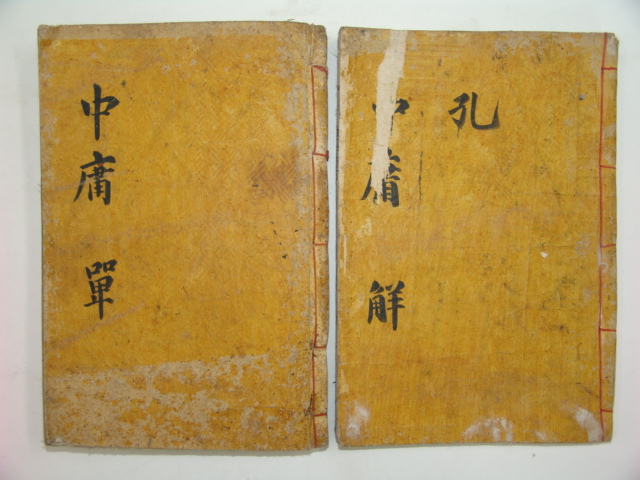 中庸 單
孔
中庸 解